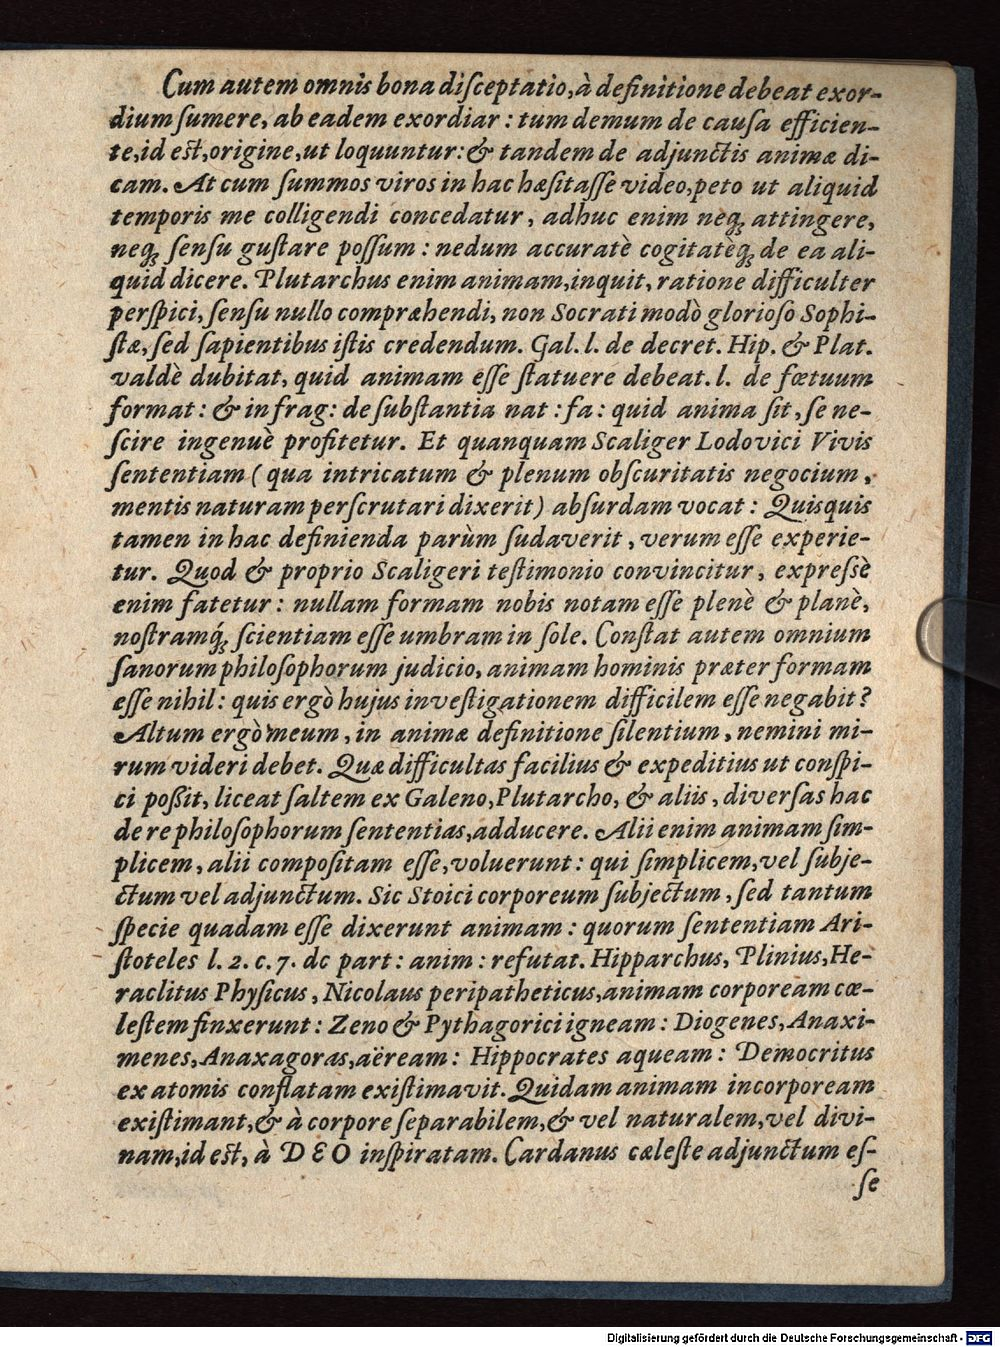 Cum autem omnis bona disceptatio, à definitione debeat exor-
dium sumere, ab eadem exordiar : tum demum de causa efficien-
te, id est, origine, ut loquuntur: & tandem de adjunctis animæ di-
cam. At cum summos viros in hac hæsitasse video, peto ut aliquid
temporis me colligendi concedatur, adhuc enim neq; attingere,
neq; sensu gustare possum : nedum accuratè cogitatèq; de ea ali-
quid dicere. Plutarchus enim animam, inquit, ratione difficulter
perspici, sensu nullo compræhendi, non Socrati modò glorioso Sophi-
stæ, sed sapientibus istis credendum. Gal. l. de decret. Hip. & Plat.
valdè dubitat, quid animam esse statuere debeat. l. de fœtuum
format : & in frag: de substantia nat : fa : quid anima sit, se ne-
scire ingenuè profitetur. Et quanquam Scaliger Lodovici Vivis
sententiam ( qua intricatum & plenum obscuritatis negocium,
mentis naturam perscrutari dixerit) absurdam vocat : Quisquis
tamen in hac definienda parùm sudaverit, verum esse experie-
tur. Quod & proprio Scaligeri testimonio convincitur, expressè
enim fatetur : nullam formam nobis notam esse plenè & planè,
nostramq́; scientiam esse umbram in sole. Constat autem omnium
sanorum philosophorum judicio, animam hominis præter formam
esse nihil : quis ergò hujus investigationem difficilem esse negabit?
Altum ergò meum, in animæ definitione silentium, nemini mi-
rum videri debet. Quæ difficultas facilius & expeditius ut conspi-
ci poßit, liceat saltem ex Galeno, Plutarcho, & aliis, diversas hac
de re philosophorum sententias, adducere. Alii enim animam sim-
plicem, alii compositam esse, voluerunt : qui simplicem, vel subje-
ctum vel adjunctum. Sic Stoici corporeum subjectum, sed tantum
specie quadam esse dixerunt animam : quorum sententiam Ari-
stoteles l. 2. c. 7. de part : anim : refutat. Hipparchus, Plinius, He-
raclitus Physicus, Nicolaus peripatheticus, animam corpoream cœ-
lestem finxerunt : Zeno & Pythagorici igneam : Diogenes, Anaxi-
menes, Anaxagoras, aëream : Hippocrates aqueam : Democritus
ex atomis conflatam existimavit. Quidam animam incorpoream
existimant, & à corpore separabilem, & vel naturalem, vel divi-
nam, id est, à DEO inspiratam. Cardanus cæleste adjunctum es-
se
Digitalisierung gefördert durch die Deutsche Forschungsgemeinschaft - DFG